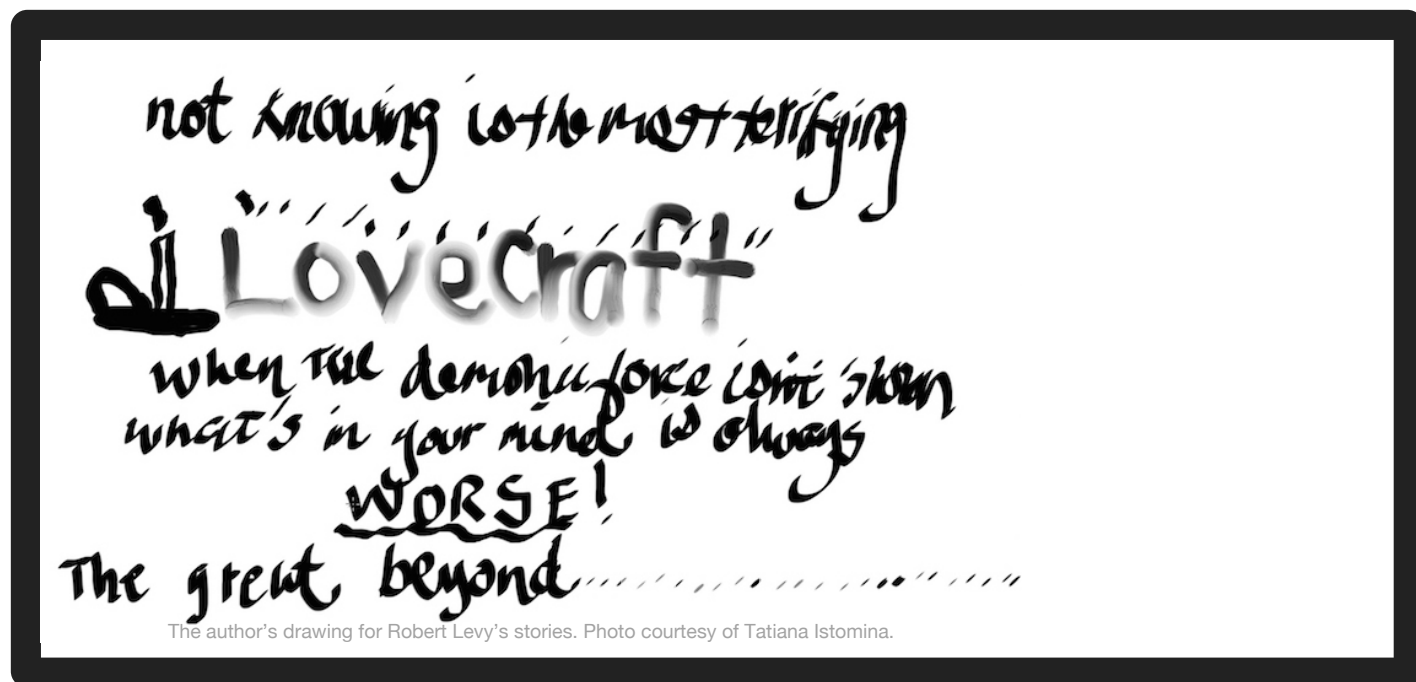 not knowing is the most terrifying
Lovecraft
when THE demonic force isn't shown
what's in your mind is always
WORSE!
The great beyond..............................
The author's drawing for Robert Levy's stories. Photo courtesy of Tatiana Istomina.